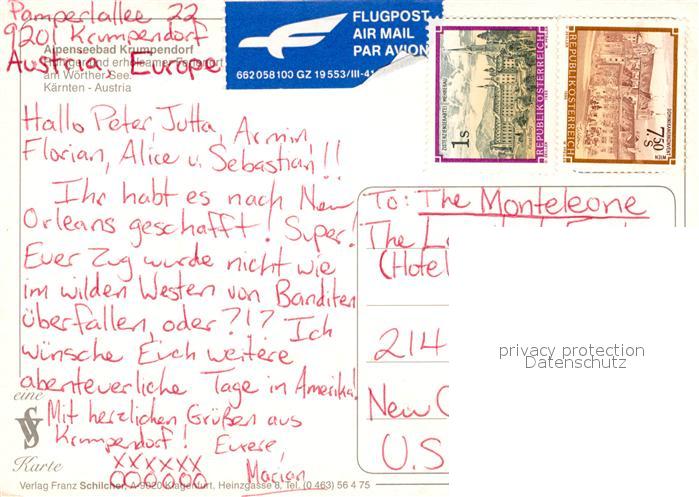 Pamperlallee 22
9201 Krumpendorf
Austria, Europe
Alpenseebad Krumpendorf
am Wörther See
Kärnten - Austria
FLUGPOST
AIR MAIL
PAR AVION
662 058 100 GZ 19 553/III-41
1s
REPUBLIK ÖSTERREICH
ZISTERZIENSERABTEI MEHRERAU
REPUBLIK ÖSTERREICH
DOMINIKANERKONVENT
WIEN
7.50 s
Hallo Peter, Jutta, Armin,
Florian, Alice u. Sebastian!!
Ihr habt es nach New
Orleans geschafft! Super!
Euer Zug wurde nicht wie
im wilden Westen von Banditen
überfallen, oder?!? Ich
wünsche Euch weitere
abenteuerliche Tage in Amerika!
Mit herzlichen Grüßen aus
Krumpendorf! Euere,
XXXXXX
OOOOOO
Marian
To: The Monteleone
The
(Hotel
214
New
U.S
privacy protection
Datenschutz
eine
Karte
Verlag Franz Schilcher, A-9020 Klagenfurt, Heinzgasse 8, Tel. (0 463) 56 4 75